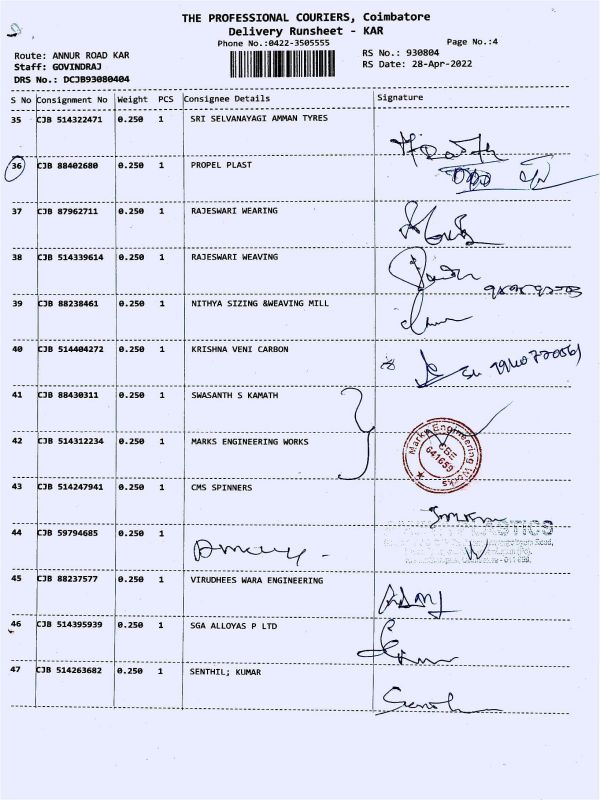 THE PROFESSIONAL COURIERS, Coimbatore
Delivery Runsheet - KAR
Phone No.:0422-3505555
Page No.:4
Route: ANNUR ROAD KAR
RS No.: 930804
Staff: GOVINDRAJ
RS Date: 28-Apr-2022
DRS No.: DCJB93080404
S No Consignment No Weight PCS Consignee Details Signature
35 CJB 514322471 0.250 1 SRI SELVANAYAGI AMMAN TYRES
36 CJB 88402680 0.250 1 PROPEL PLAST
37 CJB 87962711 0.250 1 RAJESWARI WEARING
38 CJB 514339614 0.250 1 RAJESWARI WEAVING
39 CJB 88238461 0.250 1 NITHYA SIZING &WEAVING MILL
40 CJB 514404272 0.250 1 KRISHNA VENI CARBON
41 CJB 88430311 0.250 1 SWASANTH S KAMATH
42 CJB 514312234 0.250 1 MARKS ENGINEERING WORKS
Marks Engineering Works
CBE
641659
43 CJB 514247941 0.250 1 CMS SPINNERS
44 CJB 59794685 0.250 1
45 CJB 88237577 0.250 1 VIRUDHEES WARA ENGINEERING
46 CJB 514395939 0.250 1 SGA ALLOYAS P LTD
47 CJB 514263682 0.250 1 SENTHIL; KUMAR